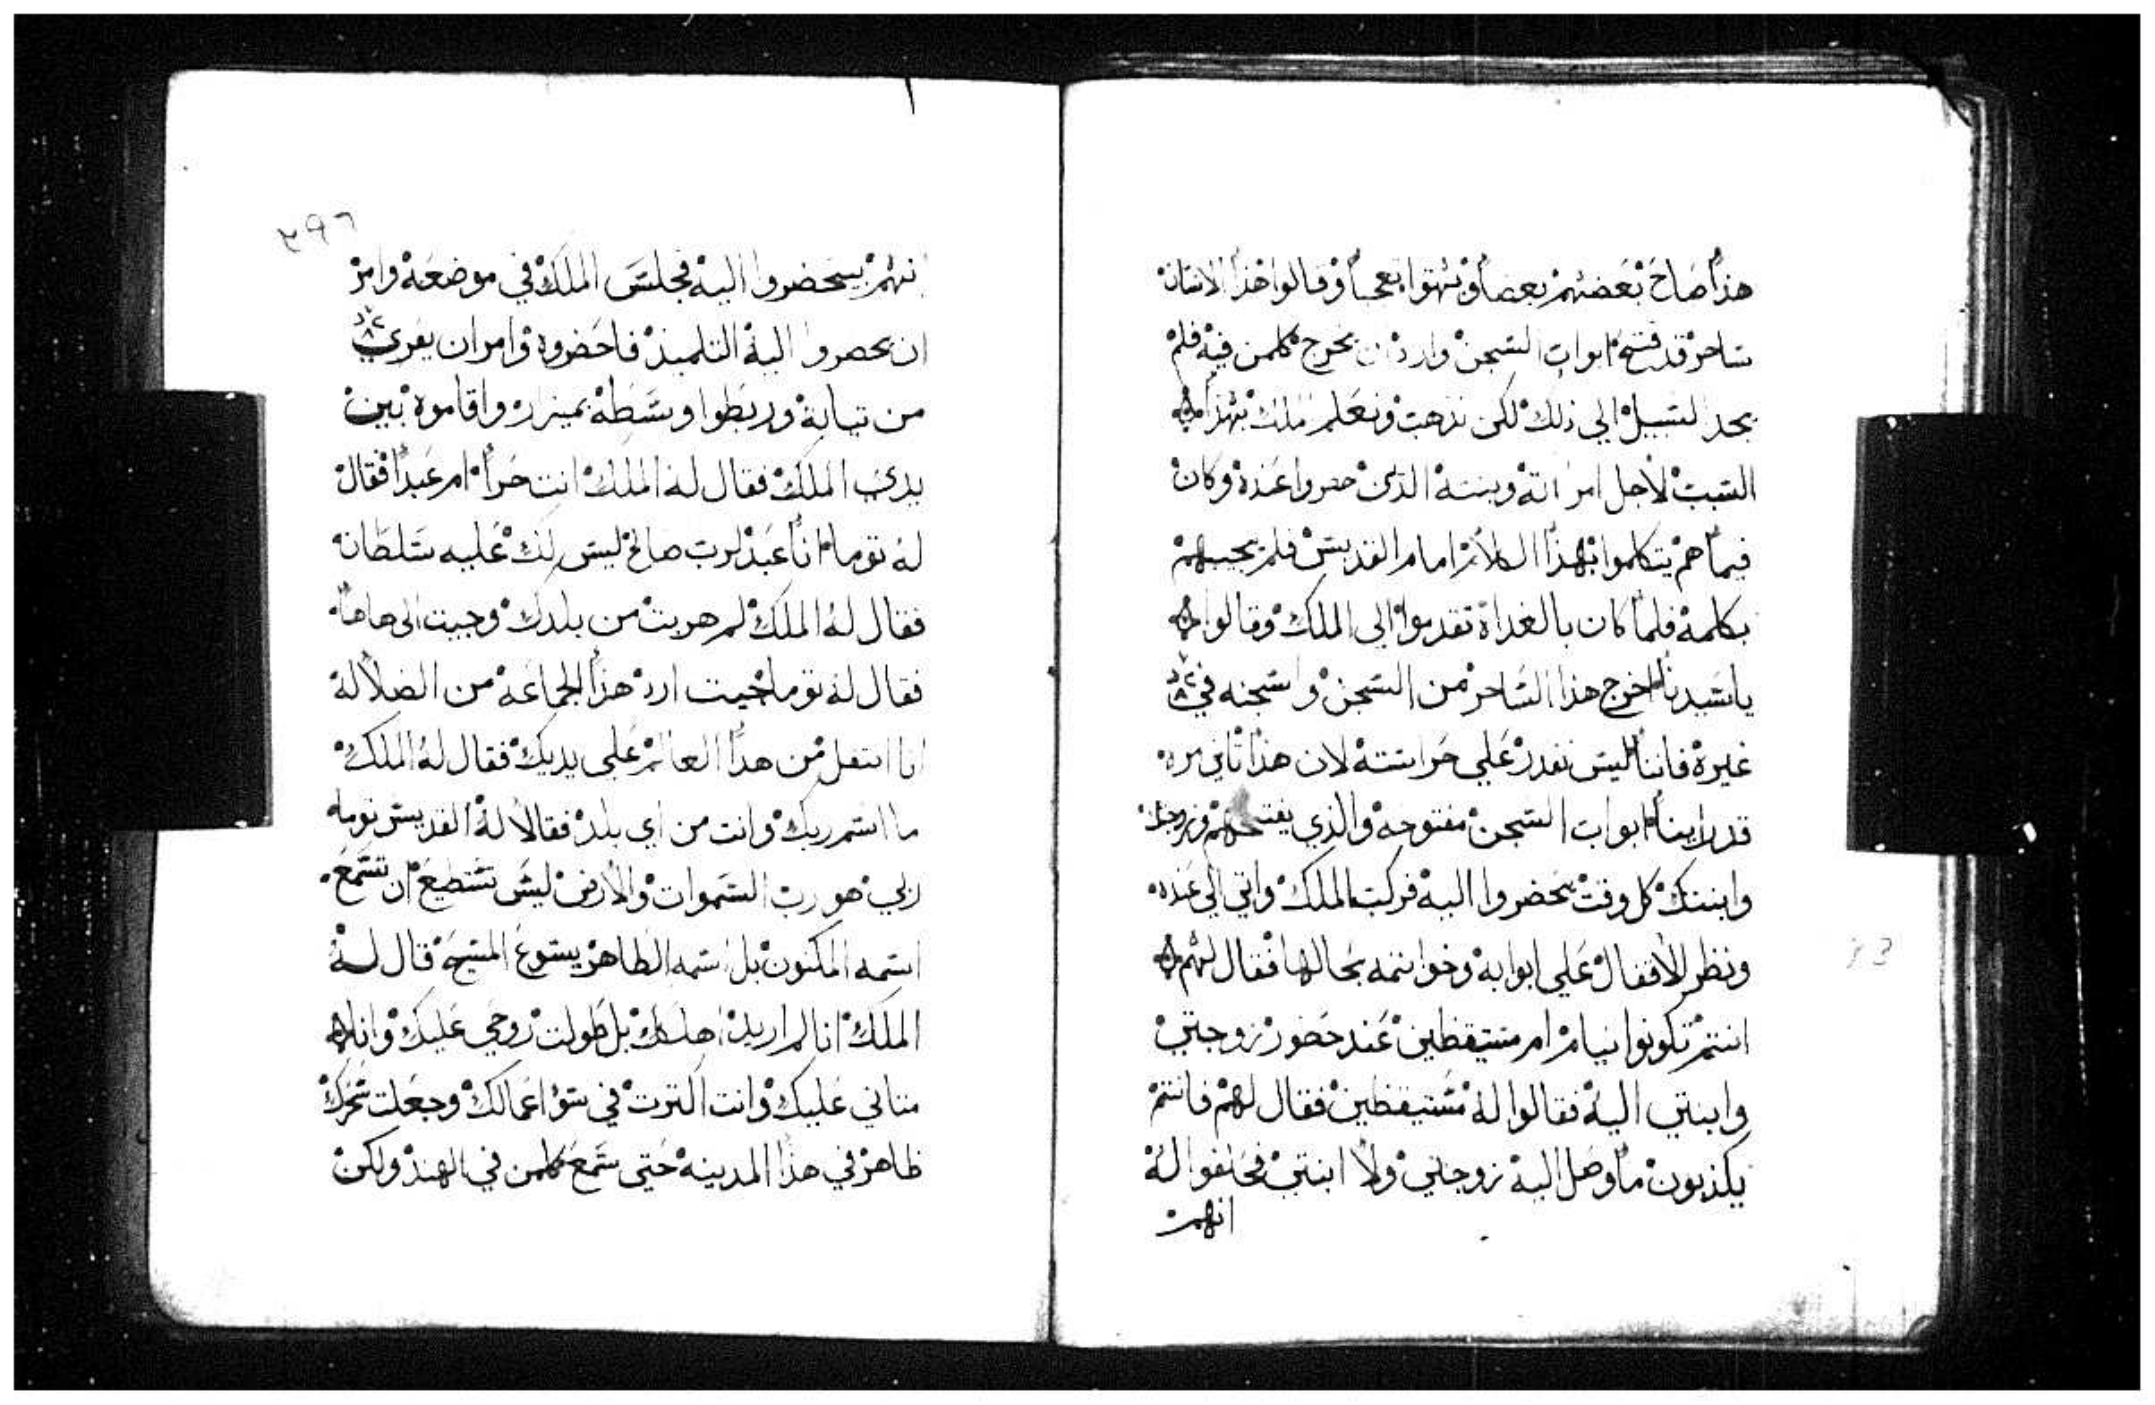 هذا صاح بعضهم بعضا وبهتوا تعجبا وقالوا هذا الانسان
ساحر قد فتح ابواب السجن واراد ان يخرج كلمن فيه فلم
يجد السبيل الي ذلك لكن نذهب ونعلم الملك بهذا
السبب لاجل امراته وبنته الذي حضروا عنده وكان
فيما هم يتكلموا بهذا الكلام امام القديس فلم يجيبهم
بكلمة فلما كان بالغداة تقدموا الي الملك وقالوا
ياسيدنا اخرج هذا الساحر من السجن واسجنه في
غيره فاننا ليس نقدر علي حراسته لان هذا ثاني مره
قد راينا ابواب السجن مفتوحه والذي يفتحهم وزوجتك
وابنتك كل وقت يحضروا اليه فركب الملك واتي الي عنده
ونظر للاقفال علي ابوابه وخواتمه بحالها فقال لهم
انتم تكونوا نيام ام مستيقظين عند حضور زوجتي
وابنتي اليه فقالوا له مستيقظين فقال لهم فانتم
يكذبون ما وصل اليه زوجتي ولا ابنتي فحلفوا له
انهم
٢٩٦
انهم يستحضروا اليه فجلس الملك في موضعه وامر
ان يحضروا اليه التلميذ فاحضروه وامر ان يعري
من تيابه وربطوا وسطه بميزار واقاموه بين
يدي الملك فقال له الملك انت حرا ام عبدا فقال
له توما انا عبد لرب صالح ليس لك عليه سلطان
فقال له الملك لم هربت من بلدك وجيت الى هاهنا
فقال له توما جيت ارد هذا الجماعه من الضلالة
انا انتقل من هدا العالم علي يديك فقال له الملك
ما اسم ربك وانت من اي بلد فقالا له القديس توما
ربي هو رب السموات والارض ليس تستطيع ان تسمع
اسمه المكنون بل اسمه الظاهر يسوع المسيح قال له
الملك انا لم اريد اهلكك بل طولت روحي عليك وانا
متاني عليك وانت اكترت في سؤ اعمالك وجعلت سحرك
ظاهر في هذا المدينه حتي سمع كلمن في الهند ولكن